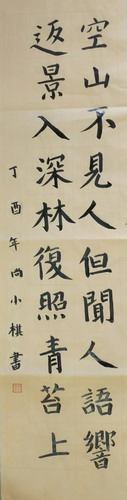 空山不見人但聞人語響
返景入深林復照青苔上
丁酉年尚小棋書